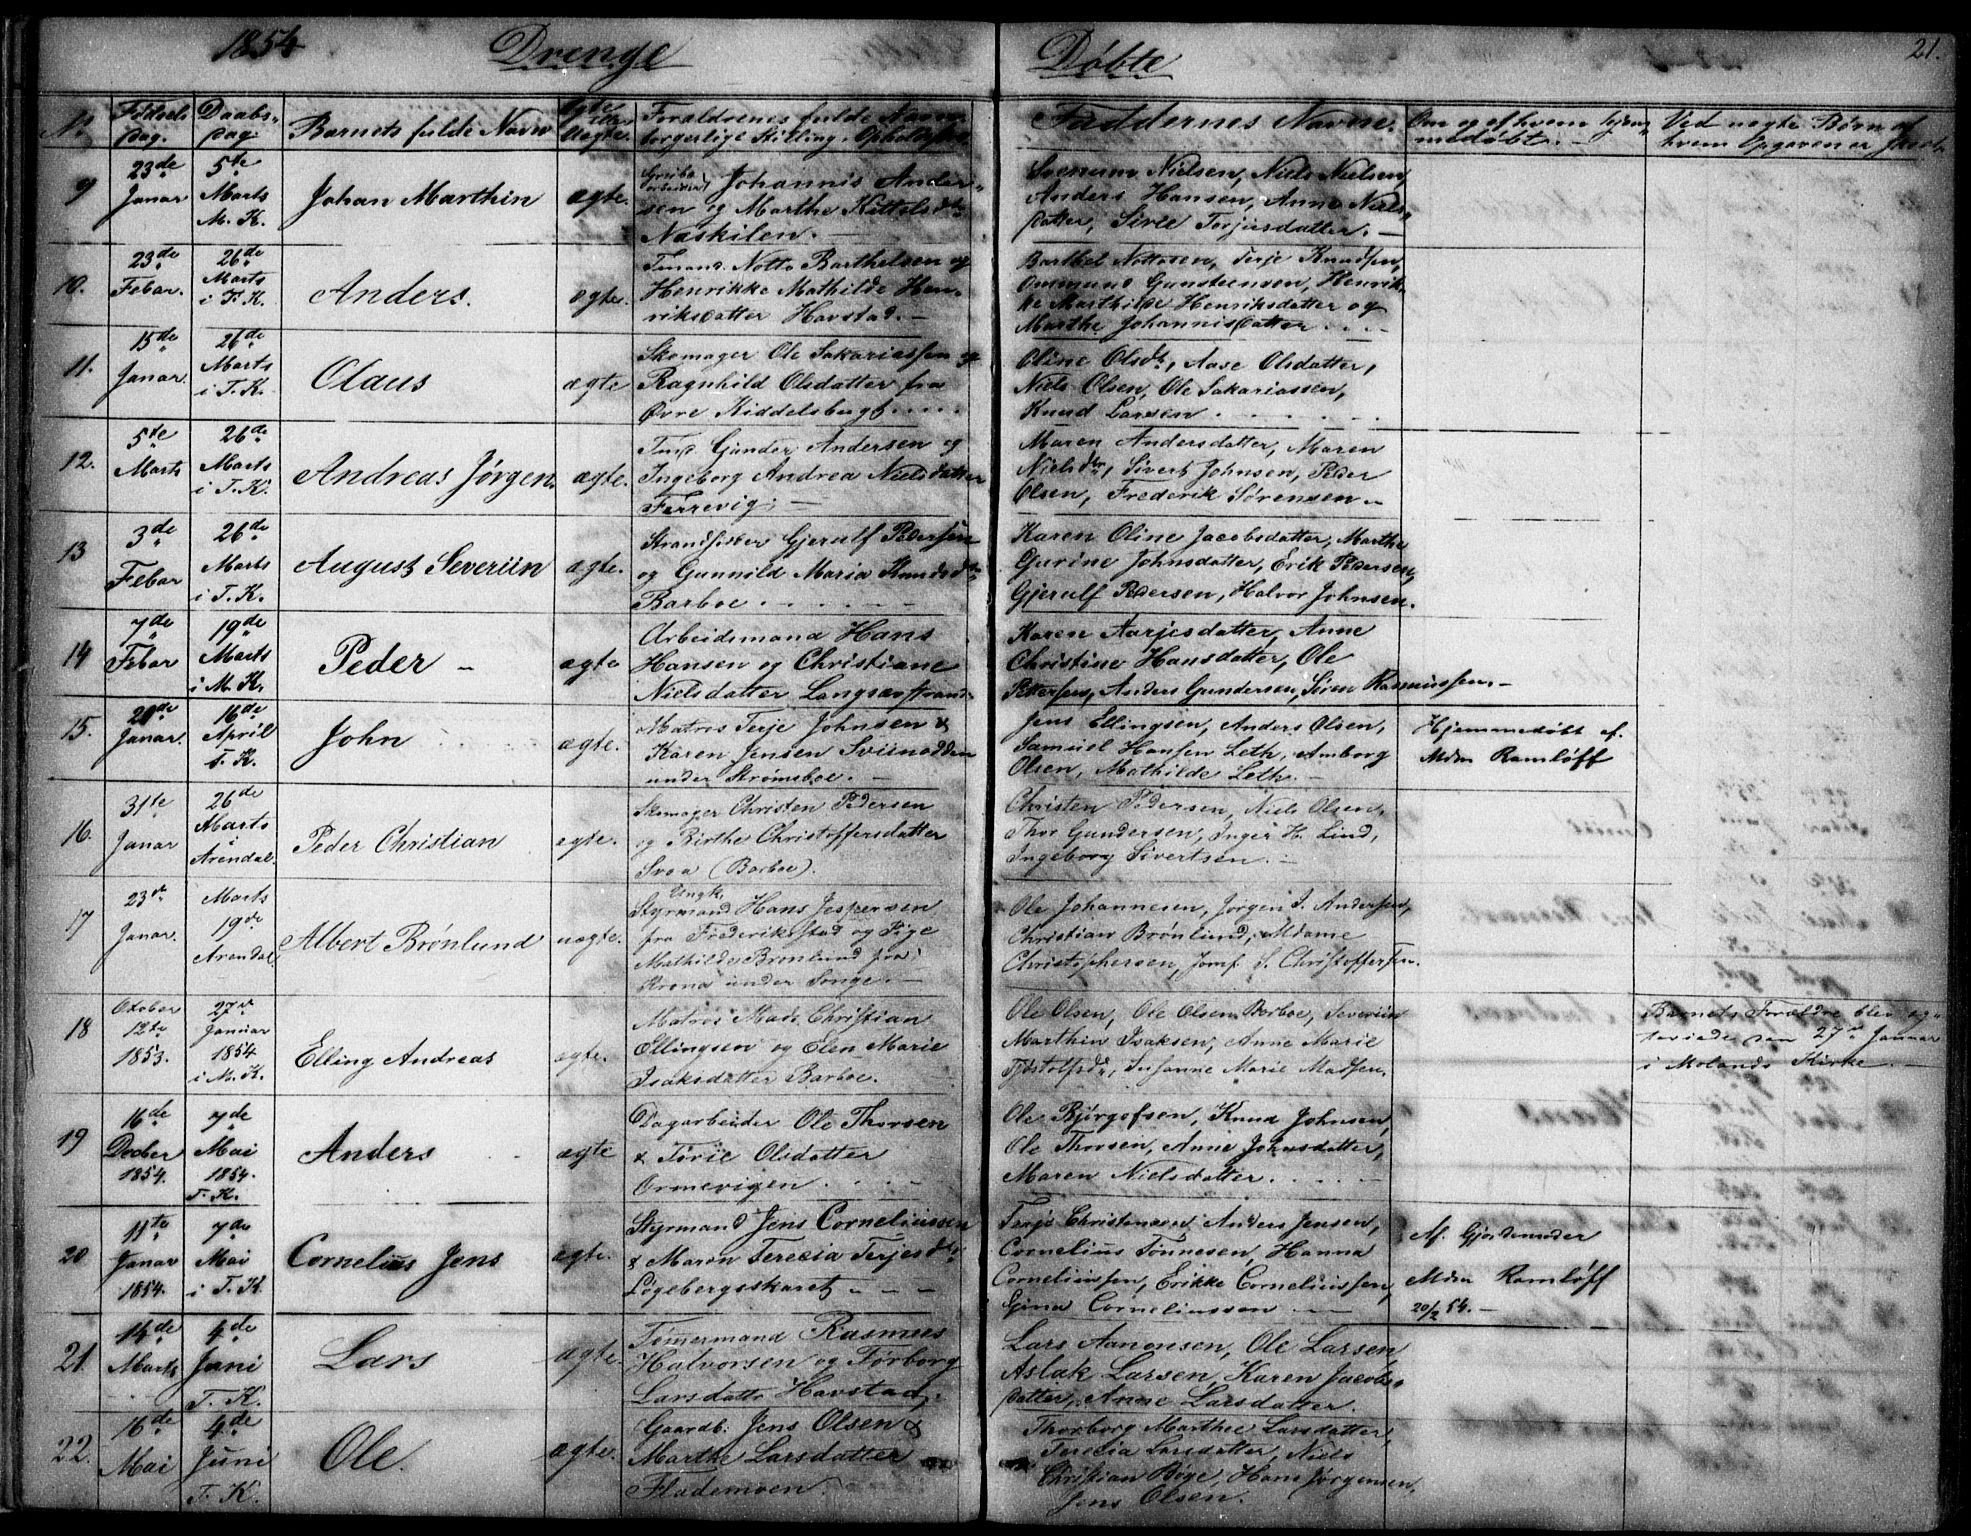 1854 Drenge Døbte 21.
No. Fødsels Dag. Daabs- Dag. Barnets fulde Navn Ægte eller Uægte. Forældrenes fulde Navn, borgerlige Stilling, Opholdssted Faddernes Navne. Om og af hvem hjem- medøbt. Ved uægte Børn af hvem Opgaven er
9 23de Janar 5te Marts M. K. Johan Marthin ægte.
Johannis Ander-
sen og Marthe Kittelsdtr
Naskilen.
Svenum Nielsen, Niels Nielsen,
Anders Hansen, Anne Niels-
datter, Sirie Torjusdatter.
10. 23de Febar. 26de Marts i T. K. Anders. ægte.
Tmand. Notto Barthelsen og
Henrikke Mathilde Hen-
riksdatter Havstad.
Barthel Nottosen, Terje Knudsen,
Ommund Gunsteensen, Henrik-
ke Marthilde Henriksdatter og
Marthe Johannisdatter
11. 15de Janar. 26de Marts i T. K. Olaus ægte
Skomager Ole Sakariassen og
Ragnhild Olsdatter fra
Øvre Kiddelsbugt
Oline Olsdtr, Aase Olsdatter,
Niels Olsen, Ole Sakariassen,
Knud Larsen
12. 5te Marts 26de Marts i T. K. Andreas Jørgen. ægte.
Tmd Gunder Andersen og
Ingeborg Andrea Nielsdatter
Færrevig.
Maren Andersdatter, Maren
Nielsdtr, Sivert Johnsen, Peder
Olsen, Frederik Sørensen
13 3de Febar 26de Marts i T. K. August Severiin ægte.
Strandsidder Gjerulf Pedersen
og Gunnild Maria Knudsdtr
Barboe.
Karen Oline Jacobsdatter, Marthe
Gurine Johnsdatter, Erik Pedersen,
Gjerulf Pedersen, Halvor Johnsen.
14 7de Febar 19de Marts i M. K. Peder ægte
Arbeidsmand Hans
Hansen og Christiane
Nielsdatter Langsæstrand.
Karen Aarjesdatter, Anne
Christine Hansdatter, Ole
Pettersen, Anders Gundersen, Søren Rasmussen.
15. 20de Janar. 16de April T. K. John ægte.
Matros Terje Johnsen &
Karen Jensen Sviinodden
under Strømsboe.
Jens Ellingsen, Anders Olsen,
Samuel Hansen Leth, Amborg
Olsen, Mathilde Leth.
Hjemmedøbt af.
Mdm Ramløff
16. 31te Janar 26de Marts i Arendal. Peder Christian ægte.
Skomager Christen Pedersen
og Birthe Christoffersdatter
Svaa (Barboe).
Christen Pedersen, Niels Olsen,
Thor Gundersen, Inger H. Lind,
Ingeborg Sivertsen.
17 23de Janar. Marts 19de Arendal. Albert Brønlund uægte.
Ungk.
Styrmand Hans Jespersen
fra Frederikstad og Pige
Mathilde Brønlund fra
Krona under Songe.
Ole Johannesen, Jørgen J. Andersen,
Christian Brønlund, Mdame
Christophersen, Jomf. S. Christoffersen.
18 October 12te 1853. 27de Januar 1854 i M. K. Elling Andreas ægte.
Matros Mads Christian
Ellingsen og Elen Marie
Isaksdatter Barboe.
Ole Olsen, Ole Olsen Barboe, Severiin
Marthin Isaksen, Anne Marie
Tjøstolfsdtr, Susanne Marie Madsen.
Barnets Forældre blev æg-
teviede den 27de Januar
i Molands Kirke.
19 16de Decber 1854. 7de Mai 1854. T. K. Anders ægte
Dagarbeider Ole Thorsen
& Torie Olsdatter
Ormevigen
Ole Bjørgofsen, Knud Johnsen,
Ole Thorsen, Anne Johnsdatter,
Maren Nielsdatter.
20 11te Janar 1854. 7de Mai i T. K. Cornelius Jens ægte.
Styrmand Jens Corneliussen
& Maren Terecia Terjesdtr
Løgebergsskaret
Terje Christensen, Anders Jensen,
Cornelius Tønnesen, Hanna
Corneliussen, Erikke Corneliussen,
Gina Corneliussen
Af Gjordemoder
Mdm Ramløff
20/2 54.
21. 14de Marts 4de Juni T. K. Lars ægte.
Tømermand Rasmus
Halvorsen og Tørborg
Larsdatte Havstad.
Lars Aanonsen, Ole Larsen,
Aslak Larsen, Karen Jacobs-
datter, Anne Larsdatter.
22. 16de Mai 4de Juni T. K. Ole. ægte.
Gaardb. Jens Olsen &
Marthe Larsdatter
Flademoen.
Thorborg Marthee Larsdatter,
Terecia Larsdatter, Niels
Christian Bøge, Hans Jørgensen,
Jens Olsen.